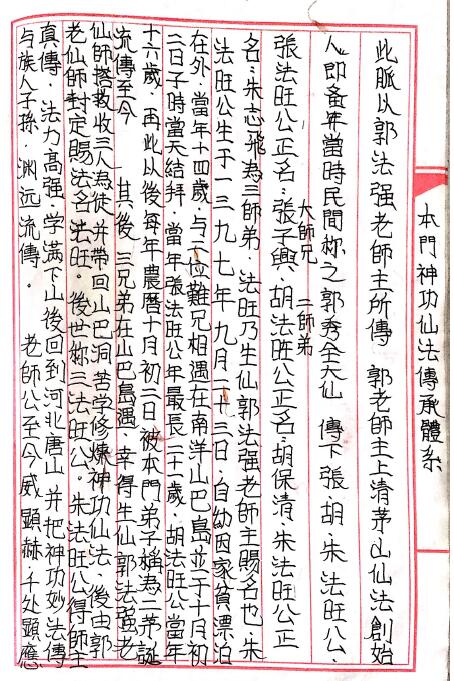 本門神功仙法傳承體系
此脈以郭法强老師主所傳 郭老師主上清茅山仙法創始
人即當時民間称之郭秀全大仙 傳下張、胡、朱法旺公、
大師兄 二師弟
張法旺公正名：張子興、胡法旺公正名：胡保清、朱法旺公正
名：朱志飛為三師弟．法旺乃生仙郭法强老師主賜名也．朱
法旺公生于一三九七年九月二十三日．自幼因家貧漂泊
在外．當年十四歲．与二位難兄相遇在南洋山巴島並于十月初
二日子時當天結拜．當年張法旺公年最長二十歲．胡法旺公當年
十六歲．再此以後每年農曆十月初二日被本門弟子稱為二茅誕
流傳至今 其後 三兄弟在山巴島遇 幸得生仙郭法强老
仙師搭救收三人為徒 并帶回山巴洞苦学修煉神功仙法．後由郭
老仙師封定賜法名法旺．後世称三法旺公．朱法旺公得師主
真傳．法力高强．学满下山後回到河北唐山 并把神功妙法傳
与族人子孫．渊远流傳。 老師公至今威顯赫．千处顯應